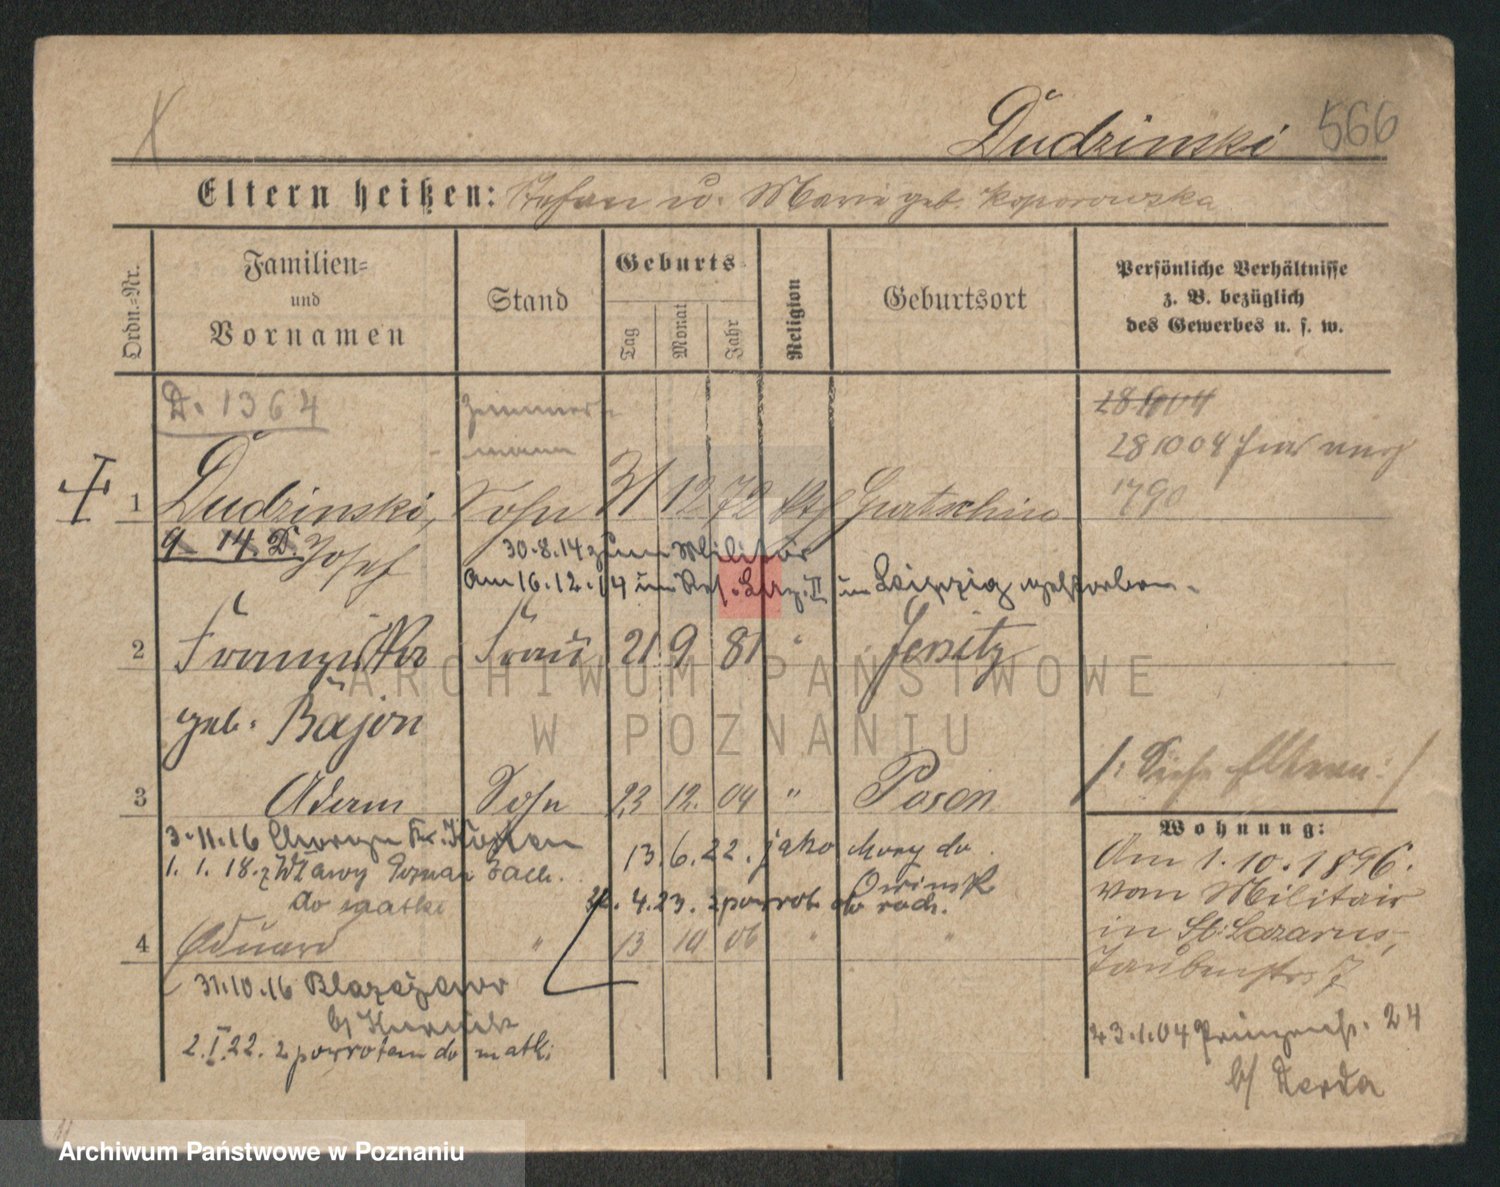 Dudzinski 566
Eltern heißen: Stefan u. Marie geb. Koporowska
Ordn.-Nr.
Familien-
und
Vornamen
Stand
Geburts-
Tag
Monat
Jahr
Religion
Geburtsort
Persönliche Verhältnisse
z. B. bezüglich
des Gewerbes u. s. w.
D. 1364
Zimmer-
mann
28 10 04
28 10 04
1790
1 Dudzinski, Sohn 31 12 72 kth Gurtschin
9 14 D. Josef
30.8.14 zum Militär
Am 16. 12. 14 im Res. Laz. II in Leipzig gestorben.
2 Franziska Frau 21 9 81 " Jersitz
geb. Bajon
3 Adam Sohn 23 12. 04 " Posen
/: Siehe Eltern :/
Wohnung:
3.11.16
13.6.22. jako chory do
Owinsk
1. 1. 18. z
do matki
4. 23. z powrot do rodz.
4 Eduard " 13 10 06 " "
31.10.16
b/
2.I.22. z powrotem do matki
Am 1. 10. 1896.
vom Militair
in St. Lazarus,
Taubenstr. 7
23.1.04 Prinzenstr. 24
b/ Nerda
ARCHIWUM PAŃSTWOWE
W POZNANIU
Archiwum Państwowe w Poznaniu